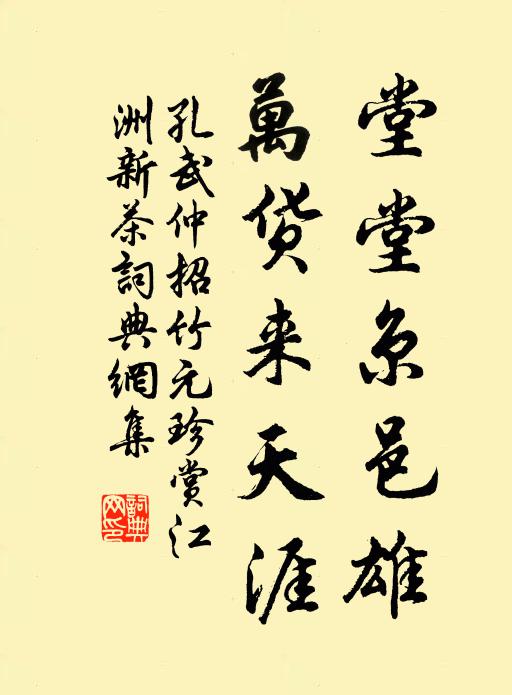 堂堂京邑雄
萬货来天涯
孔武仲招竹元珍赏江
洲新茶詞典網集
詞典网印